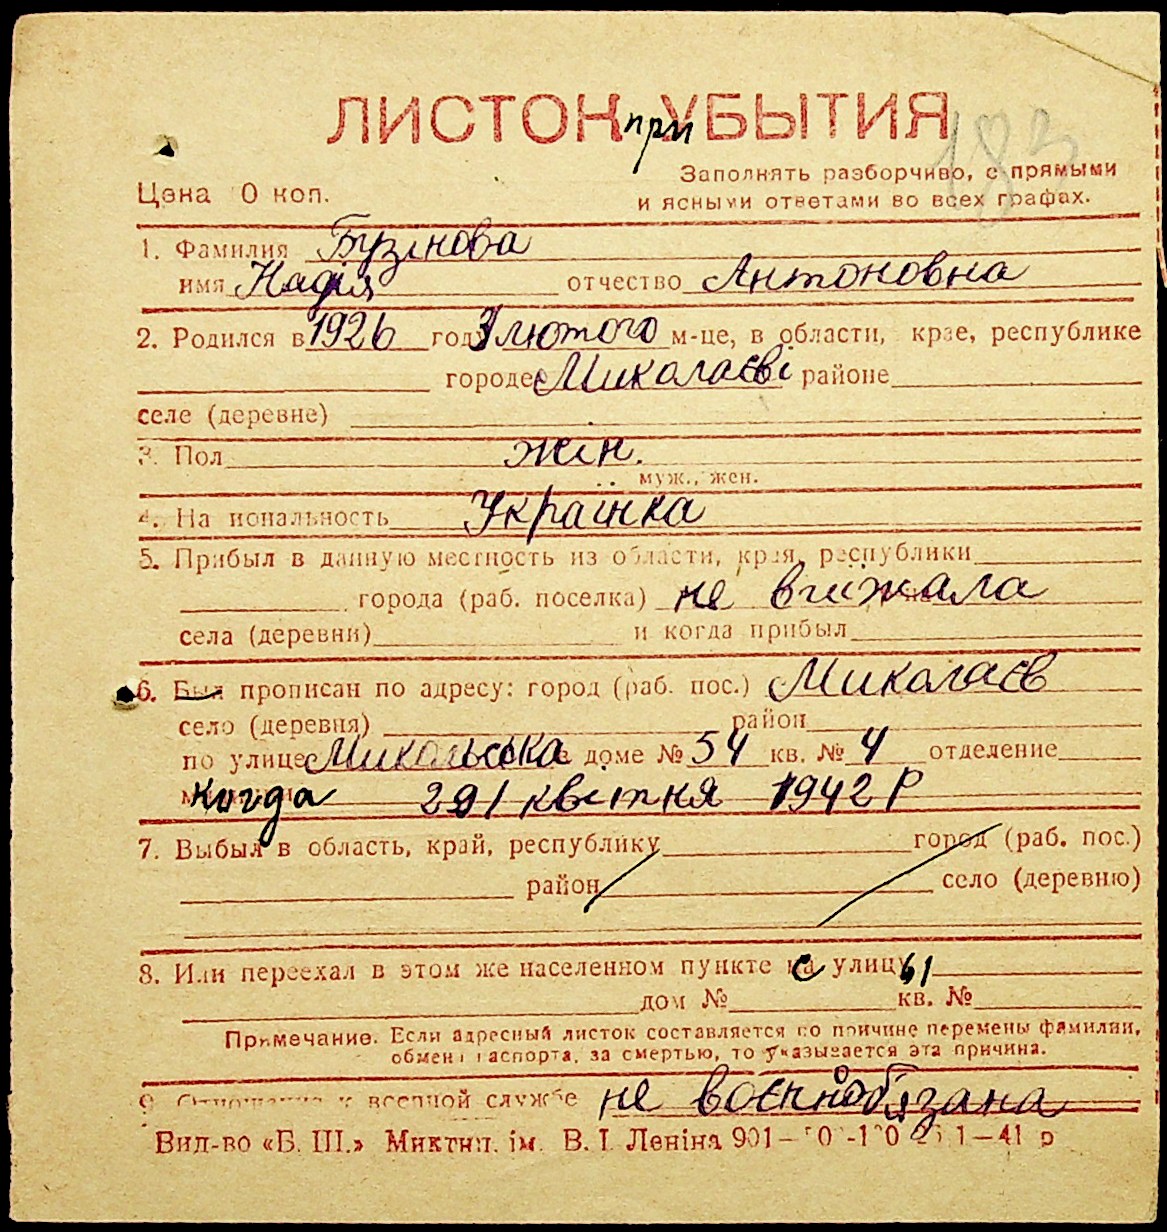 ЛИСТОК при УБЫТИЯ
183
Заполнять разборчиво, с прямыми
Цена 10 коп.
и ясными ответами во всех графах.
1. Фамилия Бузінова
имя Надія отчество Антоновна
2. Родился в 1926 году 3 лютого м-це, в области, крае, республике
городе Миколаєві районе
селе (деревне)
3. Пол жін.
муж., жен.
4. Национальность Українка
5. Прибыл в данную местность из области, края, республики
города (раб. поселка) не виїжала
села (деревни) и когда прибыл
6. Был прописан по адресу: город (раб. пос.) Миколаєв
село (деревня) район
по улице Микольська доме № 54 кв. № 4 отделение
Когда 29/ квітня 1942 р
7. Выбыл в область, край, республику город (раб. пос.)
район село (деревню)
8. Или переехал в этом же населенном пункте с улицы
дом № кв. №
Примечание. Если адресный листок составляется по причине перемены фамилии,
обмена паспорта, за смертью, то указывается эта причина.
9. Отношение к военной службе не воєннообязана
Вид-во «Б. Ш.» Миктип. ім. В. І. Леніна 901— 1—41 р